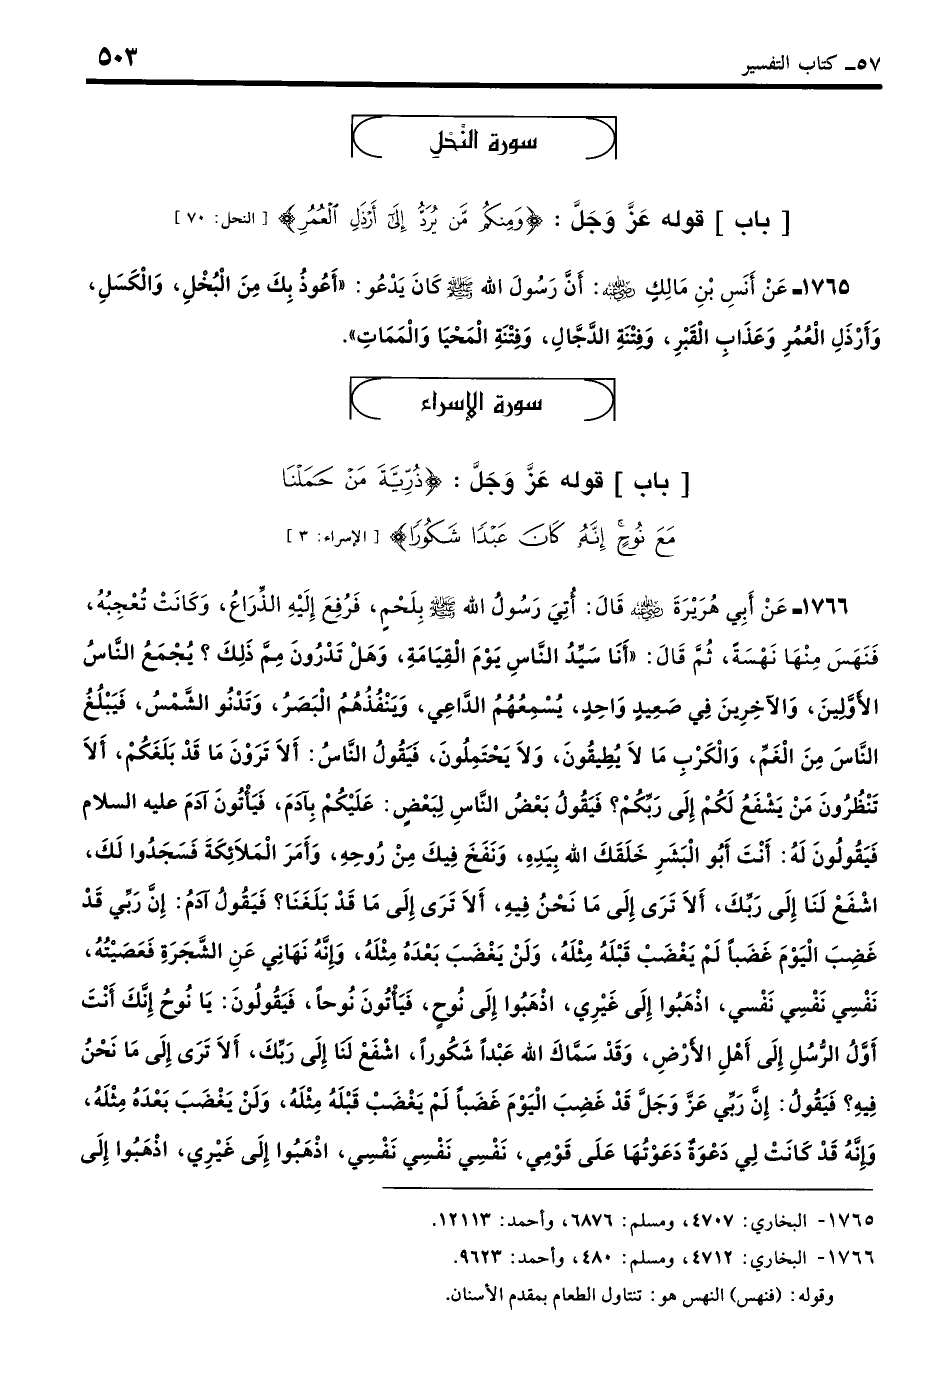 ٥٧ـ كتاب التفسير
٥٠٣
سورة النَّحْلِ
[ باب ] قوله عَزَّ وَجَلَّ : ﴿وَمِنكُم مَّن يُرَدُّ إِلَىٰٓ أَرْذَلِ ٱلْعُمُرِ﴾ [ النحل: ٧٠ ]
١٧٦٥ـ عَنْ أَنَسِ بْنِ مَالِكٍ ﵁: أَنَّ رَسُولَ الله ﷺ كَانَ يَدْعُو: «أَعُوذُ بِكَ مِنَ الْبُخْلِ، وَالْكَسَلِ،
وَأَرْذَلِ الْعُمُرِ وَعَذَابِ الْقَبْرِ، وَفِتْنَةِ الدَّجَّالِ، وَفِتْنَةِ الْمَحْيَا وَالْمَمَاتِ».
سورة الإسراء
[ باب ] قوله عَزَّ وَجَلَّ : ﴿ذُرِّيَّةَ مَنْ حَمَلْنَا
مَعَ نُوحٍ ۚ إِنَّهُۥ كَانَ عَبْدًا شَكُورًا﴾ [ الإسراء: ٣ ]
١٧٦٦ـ عَنْ أَبِي هُرَيْرَةَ ﵁ قَالَ: أُتِيَ رَسُولُ الله ﷺ بِلَحْمٍ، فَرُفِعَ إِلَيْهِ الذِّرَاعُ، وَكَانَتْ تُعْجِبُهُ،
فَنَهَسَ مِنْهَا نَهْسَةً، ثُمَّ قَالَ: «أَنَا سَيِّدُ النَّاسِ يَوْمَ الْقِيَامَةِ، وَهَلْ تَدْرُونَ مِمَّ ذَلِكَ ؟ يُجْمَعُ النَّاسُ
الأَوَّلِينَ، وَالآخِرِينَ فِي صَعِيدٍ وَاحِدٍ، يُسْمِعُهُمُ الدَّاعِي، وَيَنْفُذُهُمُ الْبَصَرُ، وَتَدْنُو الشَّمْسُ، فَيَبْلُغُ
النَّاسَ مِنَ الْغَمِّ، وَالْكَرْبِ مَا لاَ يُطِيقُونَ، وَلاَ يَحْتَمِلُونَ، فَيَقُولُ النَّاسُ: أَلاَ تَرَوْنَ مَا قَدْ بَلَغَكُمْ، أَلاَ
تَنْظُرُونَ مَنْ يَشْفَعُ لَكُمْ إِلَى رَبِّكُمْ؟ فَيَقُولُ بَعْضُ النَّاسِ لِبَعْضٍ: عَلَيْكُمْ بِآدَمَ، فَيَأْتُونَ آدَمَ عليه السلام
فَيَقُولُونَ لَهُ: أَنْتَ أَبُو الْبَشَرِ خَلَقَكَ الله بِيَدِهِ، وَنَفَخَ فِيكَ مِنْ رُوحِهِ، وَأَمَرَ الْمَلاَئِكَةَ فَسَجَدُوا لَكَ،
اشْفَعْ لَنَا إِلَى رَبِّكَ، أَلاَ تَرَى إِلَى مَا نَحْنُ فِيهِ، أَلاَ تَرَى إِلَى مَا قَدْ بَلَغَنَا؟ فَيَقُولُ آدَمُ: إِنَّ رَبِّي قَدْ
غَضِبَ الْيَوْمَ غَضَباً لَمْ يَغْضَبْ قَبْلَهُ مِثْلَهُ، وَلَنْ يَغْضَبَ بَعْدَهُ مِثْلَهُ، وَإِنَّهُ نَهَانِي عَنِ الشَّجَرَةِ فَعَصَيْتُهُ،
نَفْسِي نَفْسِي نَفْسِي، اذْهَبُوا إِلَى غَيْرِي، اذْهَبُوا إِلَى نُوحٍ، فَيَأْتُونَ نُوحاً، فَيَقُولُونَ: يَا نُوحُ إِنَّكَ أَنْتَ
أَوَّلُ الرُّسُلِ إِلَى أَهْلِ الأَرْضِ، وَقَدْ سَمَّاكَ الله عَبْداً شَكُوراً، اشْفَعْ لَنَا إِلَى رَبِّكَ، أَلاَ تَرَى إِلَى مَا نَحْنُ
فِيهِ؟ فَيَقُولُ: إِنَّ رَبِّي عَزَّ وَجَلَّ قَدْ غَضِبَ الْيَوْمَ غَضَباً لَمْ يَغْضَبْ قَبْلَهُ مِثْلَهُ، وَلَنْ يَغْضَبَ بَعْدَهُ مِثْلَهُ،
وَإِنَّهُ قَدْ كَانَتْ لِي دَعْوَةٌ دَعَوْتُهَا عَلَى قَوْمِي، نَفْسِي نَفْسِي نَفْسِي، اذْهَبُوا إِلَى غَيْرِي، اذْهَبُوا إِلَى
١٧٦٥- البخاري: ٤٧٠٧، ومسلم: ٦٨٧٦، وأحمد: ١٢١١٣.
١٧٦٦- البخاري: ٤٧١٢، ومسلم: ٤٨٠، وأحمد: ٩٦٢٣.
وقوله: (فنهس) النهس هو: تتناول الطعام بمقدم الأسنان.